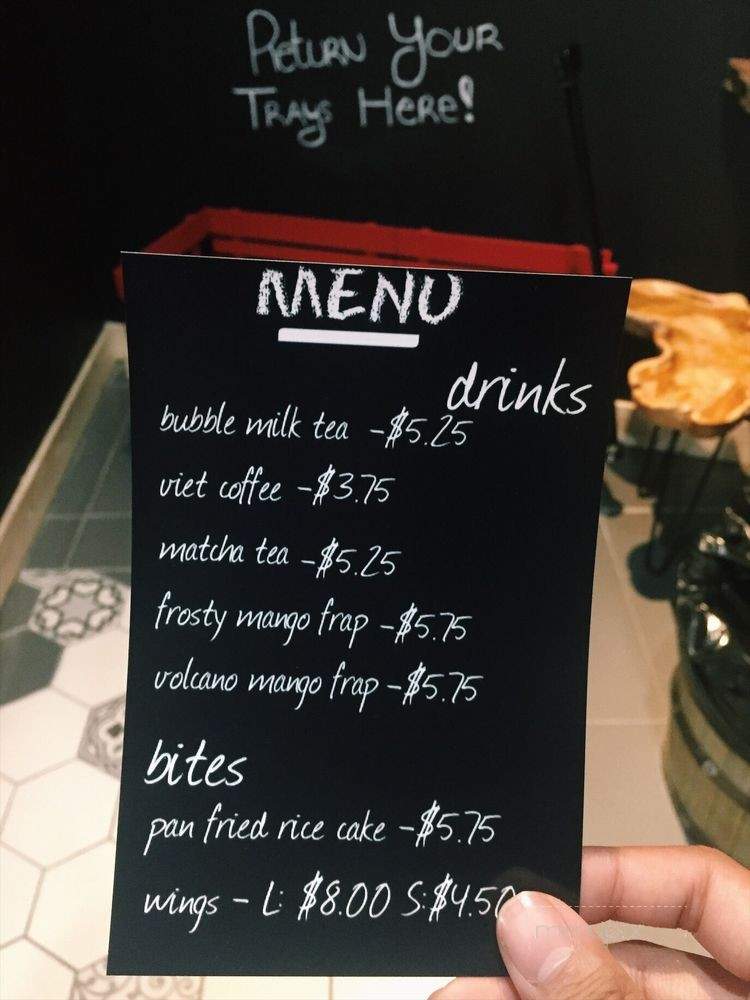 Return Your
Trays Here!
MENU
drinks
bubble milk tea -$5.25
viet coffee -$3.75
matcha tea -$5.25
frosty mango frap -$5.75
volcano mango frap -$5.75
bites
pan fried rice cake -$5.75
wings - L: $8.00 S:$4.50